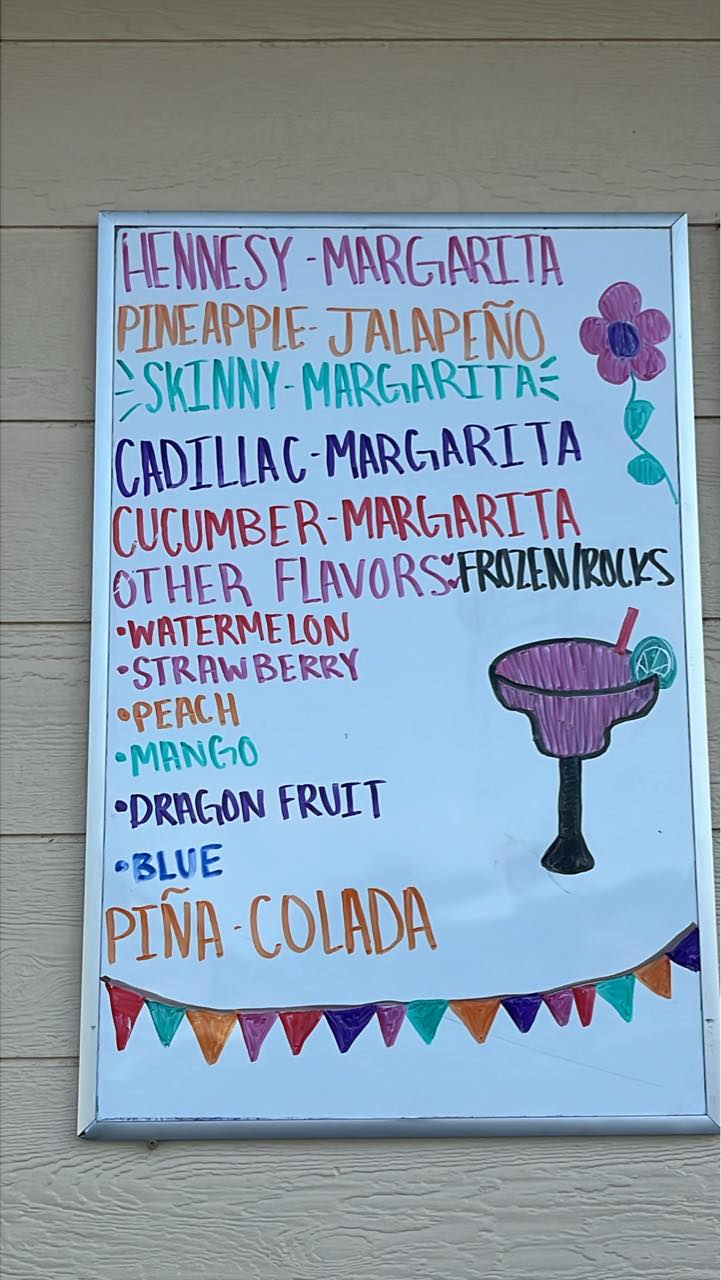 HENNESY-MARGARITA
PINEAPPLE-JALAPEÑO
SKINNY-MARGARITA
CADILLAC-MARGARITA
CUCUMBER-MARGARITA
OTHER FLAVORS: FROZEN/ROCKS
•WATERMELON
•STRAWBERRY
•PEACH
•MANGO
•DRAGON FRUIT
•BLUE
PIÑA-COLADA